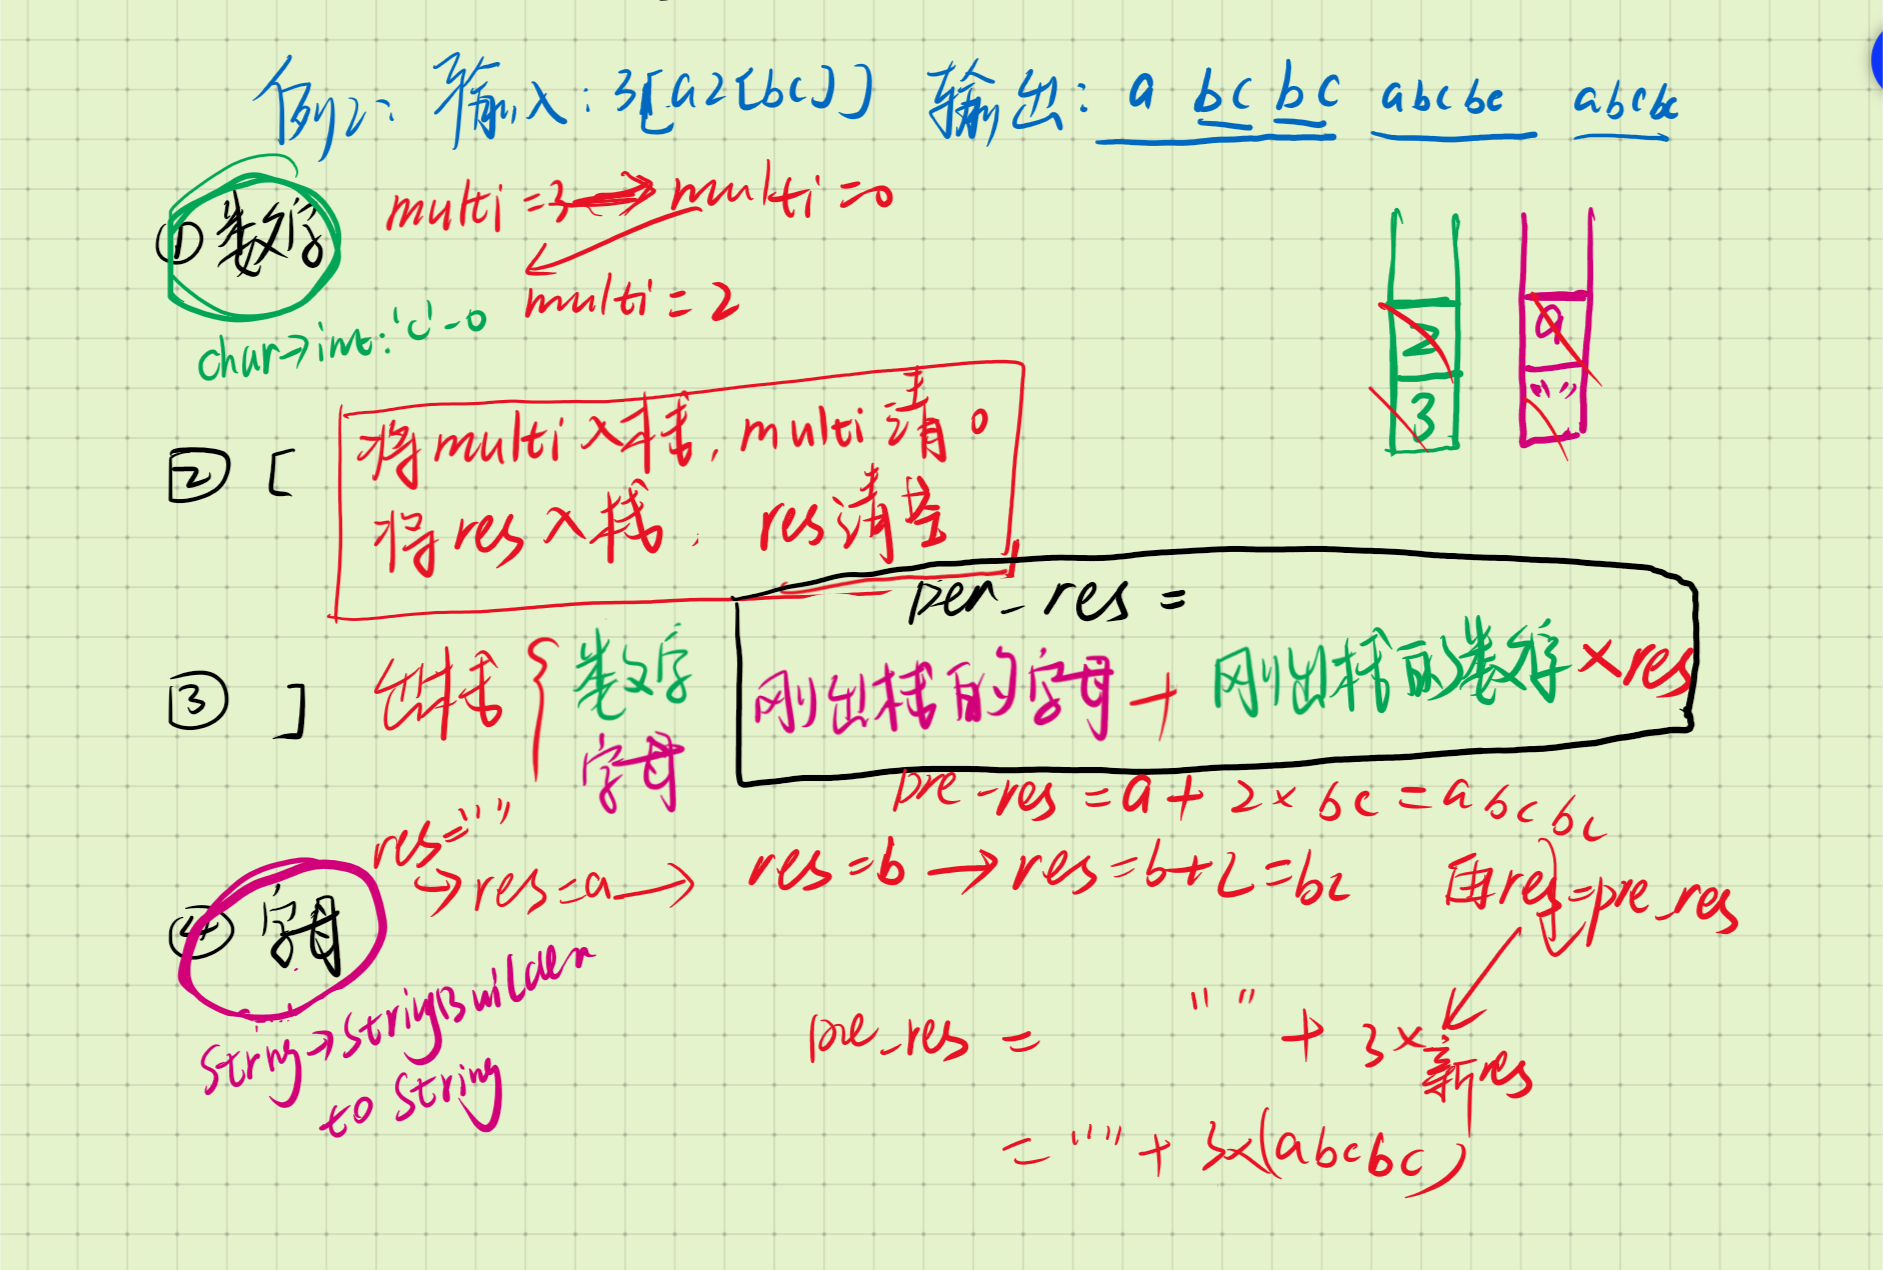 例2: 输入: 3[a2[bc]] 输出: a bc bc abcbc abcbc
① 数字 multi=3→multi=0
multi=2
char→int:'c'-0
2
3
a
""
② [ 将multi入栈, multi清0
将res入栈, res清空
per_res =
③ ] 出栈 { 数字 刚出栈的字母 + 刚出栈的数字 × res
字母
pre-res = a + 2 × bc = abcbc
res=""
→res=a→ res=b → res=b+c=bc 再res=pre_res
④ 字母
String→StringBuilder
to String
pre_res = "" + 3×新res
= "" + 3×(abcbc)